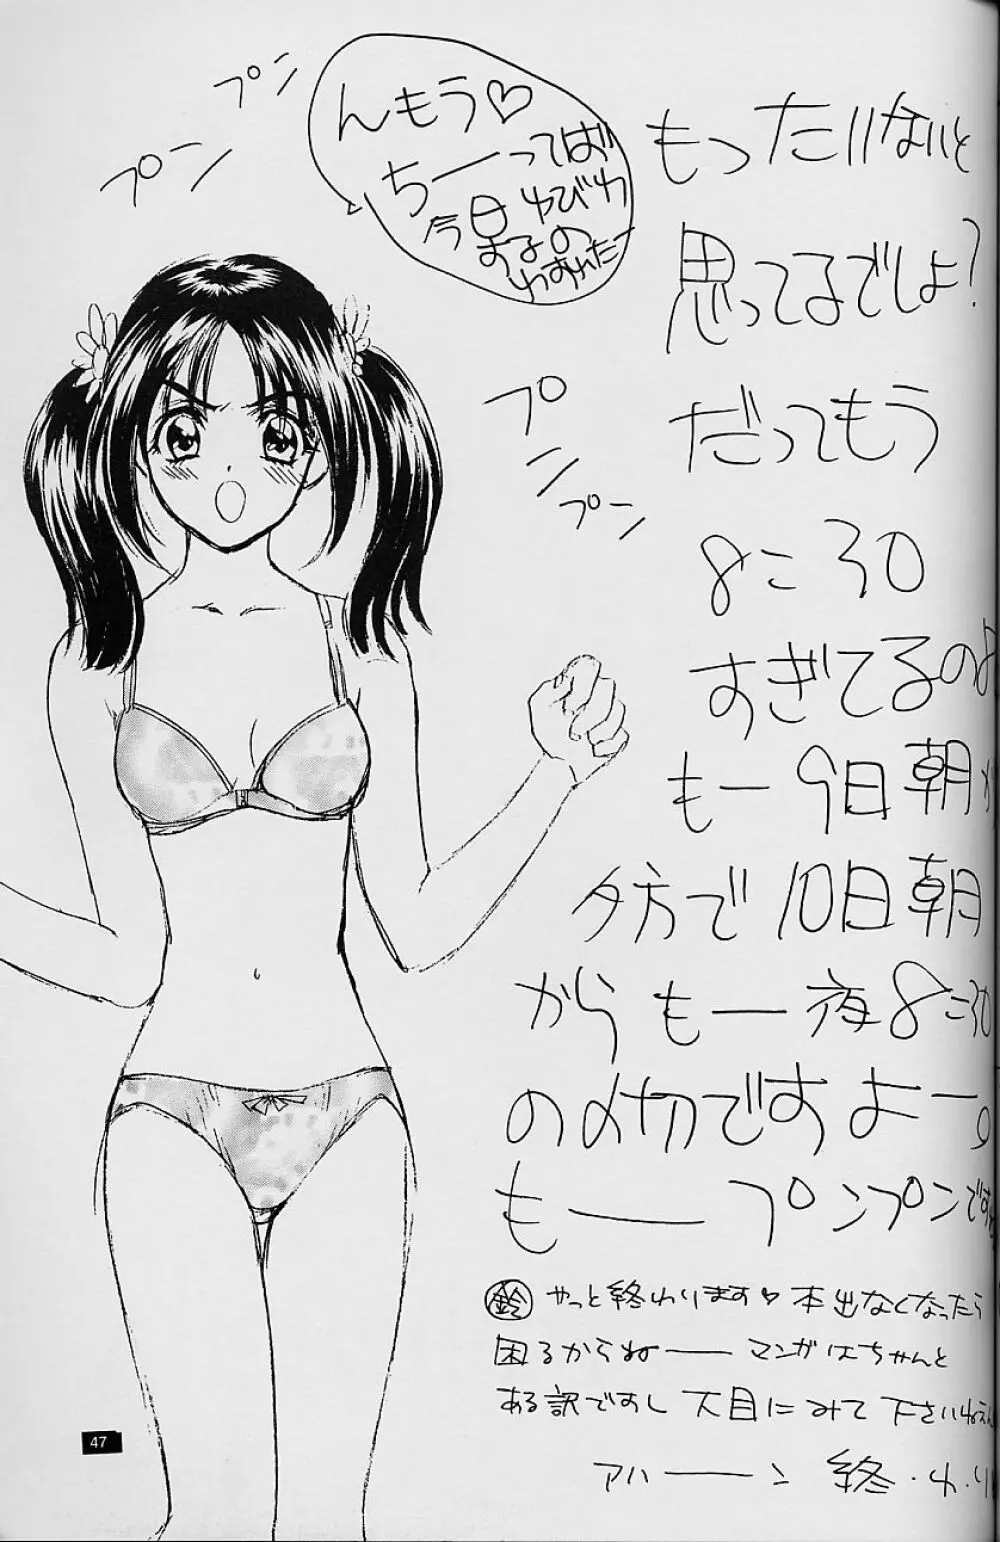 プン
プン
んもう♡
ちーってば
今日 ゆびわ
するの
わすれたー
もったいないと
思ってるでしょ?
プン
プン
だってもう
8:30
すぎてるのよ
もー9日朝か
夕方で10日朝
からもー夜8:30
の〆切ですよー。
もーープンプンです
鈴 やっと終わります♡本出なくなったら
困るからねーー マンガはちゃんと
ある訳ですし 大目にみて下さいねえん
アハーーン 終・わ・り
47